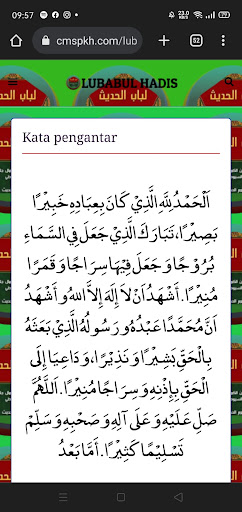 09:57
23.0
KB/S
79
cmspkh.com/lub
52
لباب الحديث
LUBABUL HADIS
لباب الحديث
Kata pengantar
اَلْحَمْدُ لِلَّهِ الَّذِيْ كَانَ بِعِبَادِهِ خَبِيْرًا
بَصِيْرًا، تَبَارَكَ الَّذِيْ جَعَلَ فِي السَّمَاءِ
بُرُوْجًا وَجَعَلَ فِيْهَا سِرَاجًا وَقَمَرًا
مُنِيْرًا. أَشْهَدُ اَنْ لاَ إِلَهَ إِلاَّ اللهُ وَأَشْهَدُ
اَنَّ مُحَمَّدًا عَبْدُهُ وَرَسُولُهُ الَّذِيْ بَعَثَهُ
بِالْحَقِّ بَشِيْرًا وَنَذِيْرًا، وَدَاعِيَا إِلَى
الْحَقِّ بِإِذْنِهِ وَسِرَاجًا مُنِيْرًا. اَللَّهُمَّ
صَلِّ عَلَيْهِ وَعَلَى آلِهِ وَصَحْبِهِ وَسَلِّمْ
تَسْلِيْمًا كَثِيْرًا. أَمَّا بَعْدُ